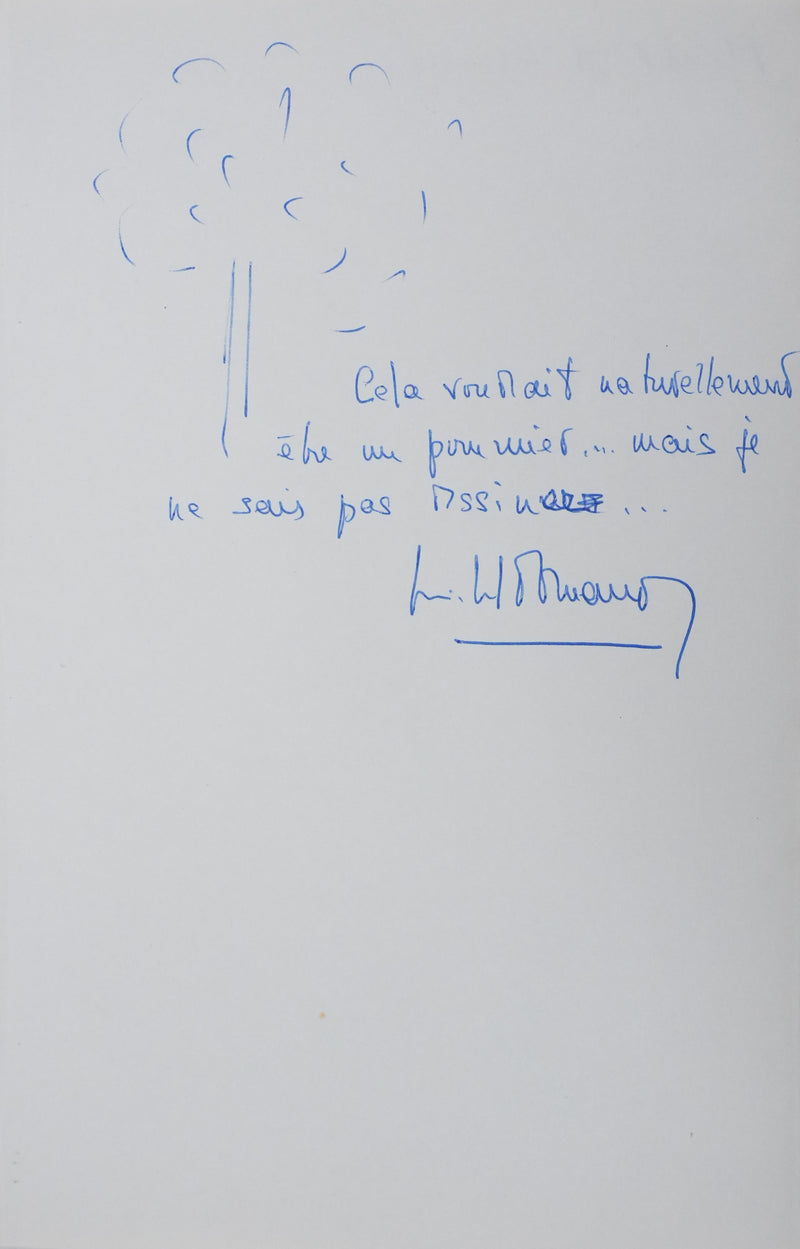 Cela voudrait naturellement
être un pommier... mais je
ne sais pas dessiner ...